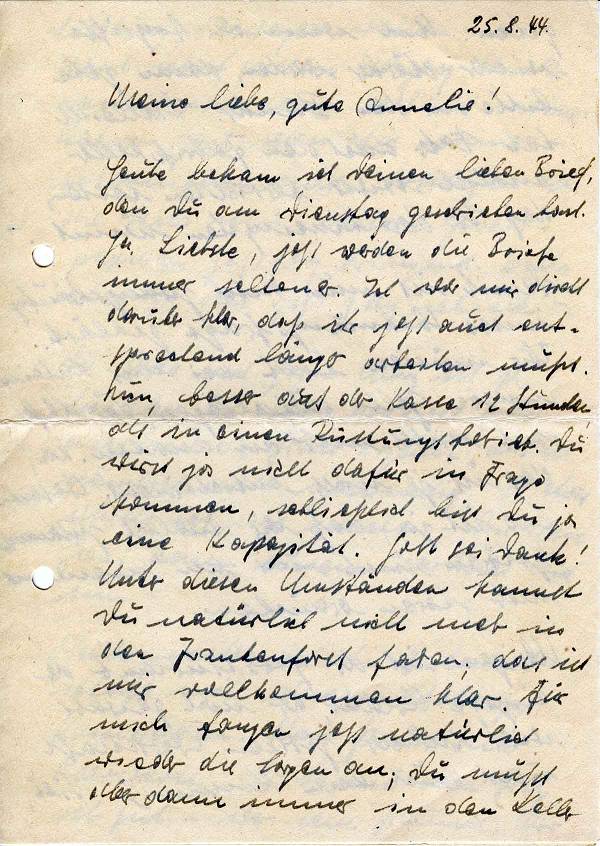 25.8.44.
Meine liebe, gute Annelie!
Heute bekam ich Deinen lieben Brief,
den Du am Dienstag geschrieben hast.
Ja, Liebste, jetzt werden die Briefe
immer seltener. Ich war mir direkt
darüber klar, daß ihr jetzt auch ent-
sprechend länger arbeiten müßt.
Nun, besser auf der Kasse 12 Stunden
als in einen Rüstungsbetrieb. Du
wirst ja nicht dafür in Frage
kommen, schließlich bist Du ja
eine Kapazität. Gott sei Dank!
Unter diesen Umständen kannst
Du natürlich nicht mehr in
den fahren, das ist
mir vollkommen klar. Für
mich fangen jetzt natürlich
wieder die Sorgen an; Du mußt
aber dann immer in den Keller